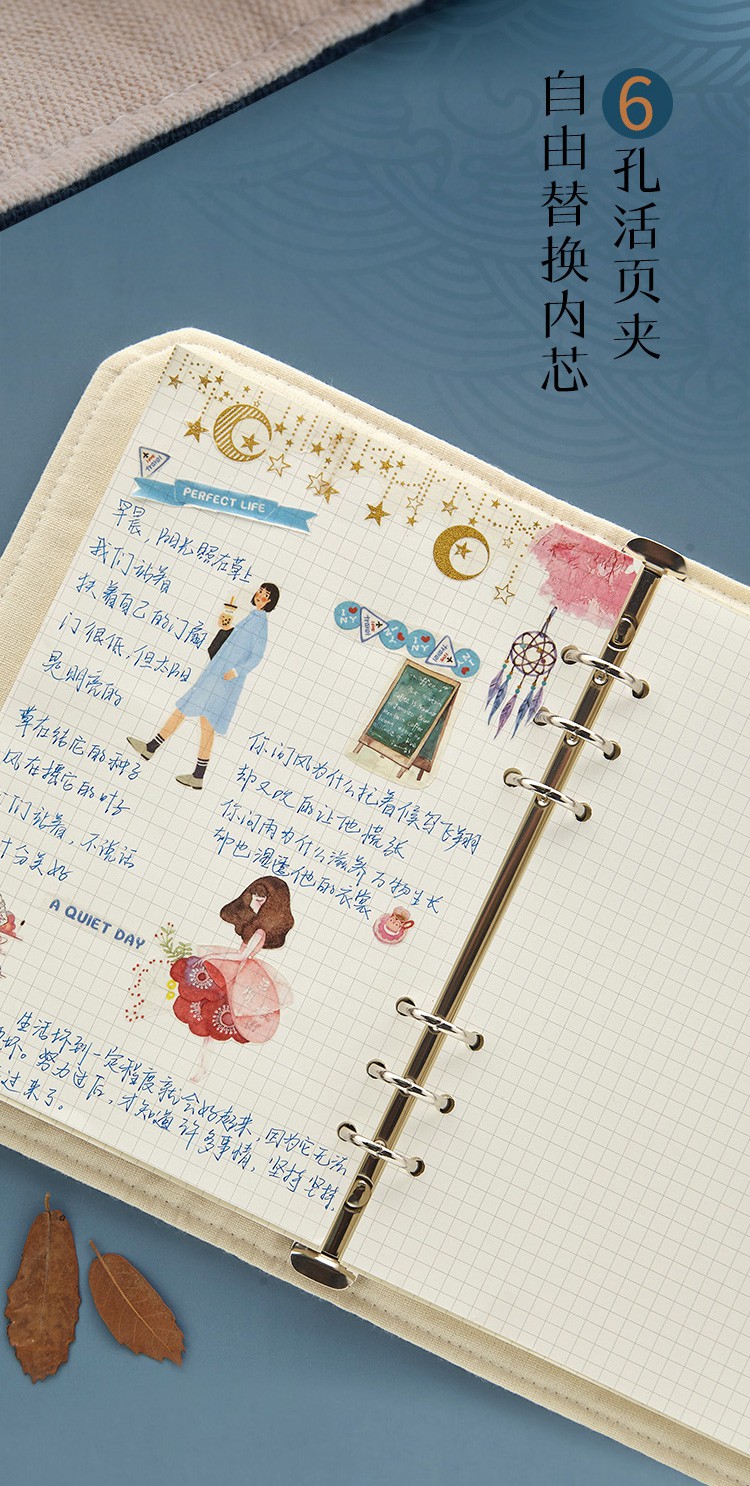 6孔活页夹
自由替换内芯
travel
PERFECT LIFE
早晨，阳光照在草上
我们站着
扶着自己的门扇
门很低，但太阳
是明亮的
草在结它的种子
风在摇它的叶子
们站着，不说话
十分美好
你问风为什么托着候鸟飞翔
却又吹的让他慌张
你问雨为什么滋养万物生长
却也湿透他的衣裳
A QUIET DAY
生活坏到一定程度就会好起来，因为它无法
坏。努力过后，才知道许多事情，坚持坚持，
过来了。